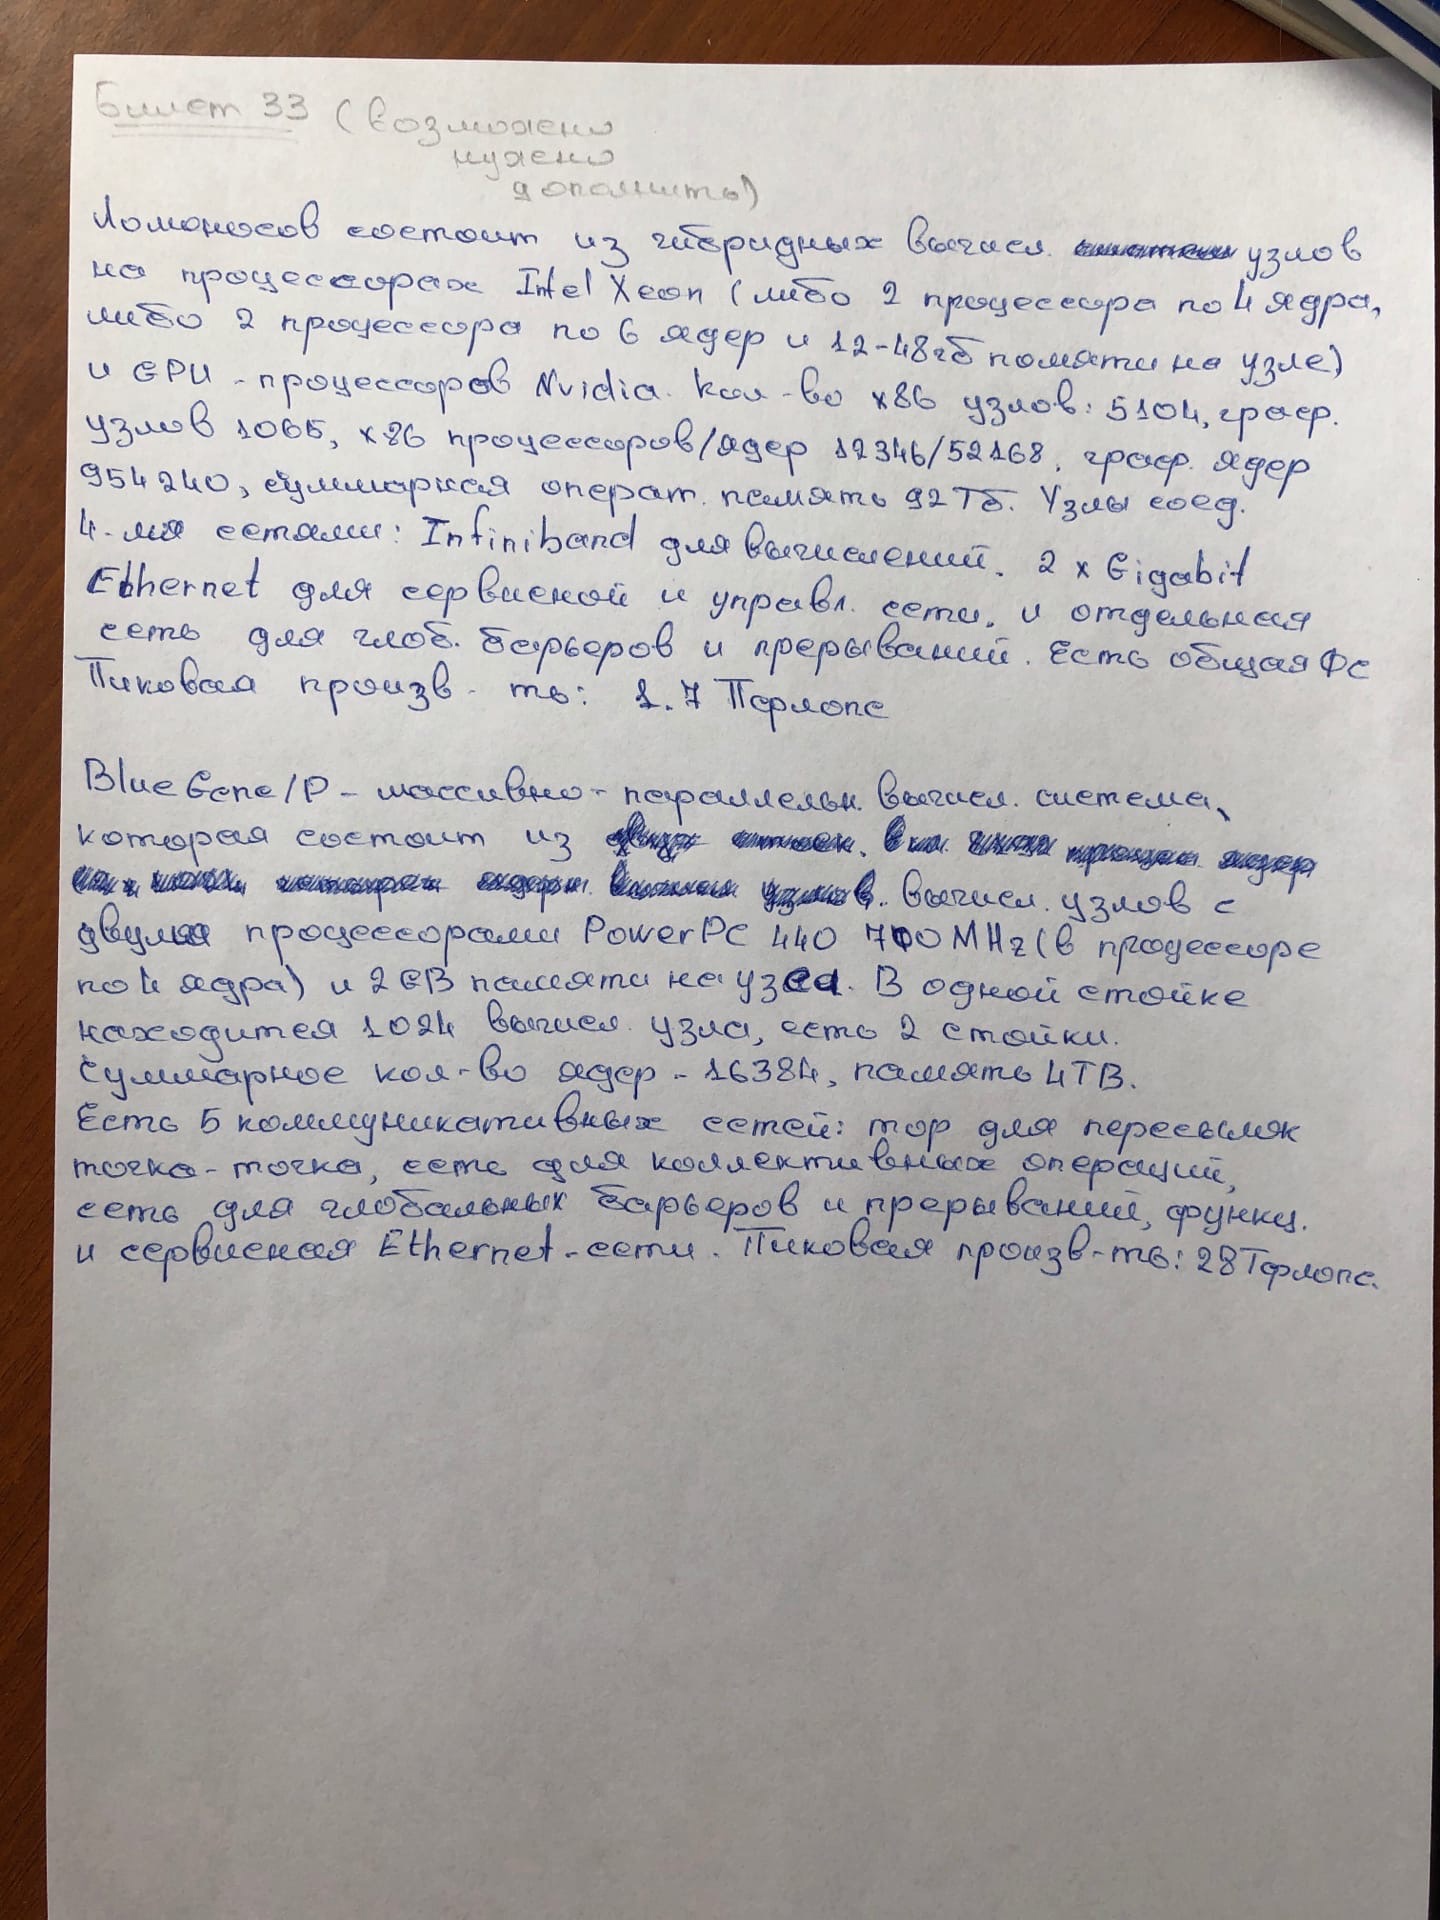 Билет 33 (возможно
нужно
дополнить)
Ломоносов состоит из гибридных вычисл. узлов
на процессорах Intel Xeon (либо 2 процессора по 4 ядра,
либо 2 процессора по 6 ядер и 12-48гб помяти на узле)
и GPU - процессоров Nvidia. Кол-во x86 узлов: 5104, граф.
узлов 1065, x86 процессоров/ядер 12346/52168, граф. ядер
954240, суммарная операт. память 92Тб. Узлы соед.
4-мя сетями: Infiniband для вычислений, 2 x Gigabit
Ethernet для сервисной и управл. сети, и отдельная
сеть для глоб. барьеров и прерываний. Есть общая ФС
Пиковая произв-ть: 1.7 Пфлопс
BlueGene/P - массивно-параллельн. вычисл. система,
которая состоит из
вычисл. узлов с
двумя процессорами PowerPC 440 700MHz (в процессоре
по 4 ядра) и 2GB памяти на узел. В одной стойке
находится 1024 вычисл. узла, есть 2 стойки.
Суммарное кол-во ядер - 16384, память 4TB.
Есть 5 коммуникативных сетей: тор для пересылок
точка-точка, сеть для коллективных операций,
сеть для глобальных барьеров и прерываний, функц.
и сервисная Ethernet-сети. Пиковая произв-ть: 28Тфлопс.